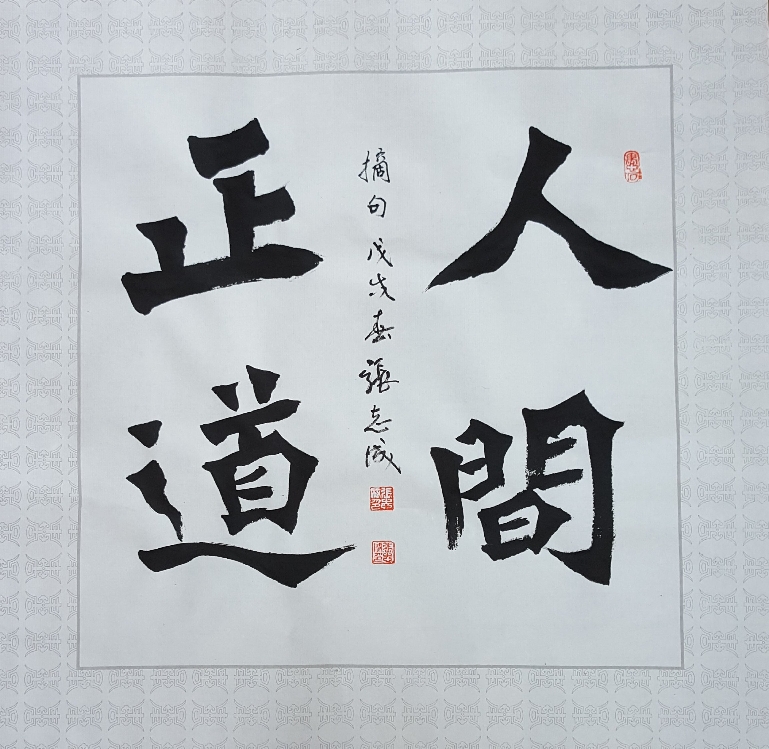 人間
正道
摘句 戊戌春 張志成